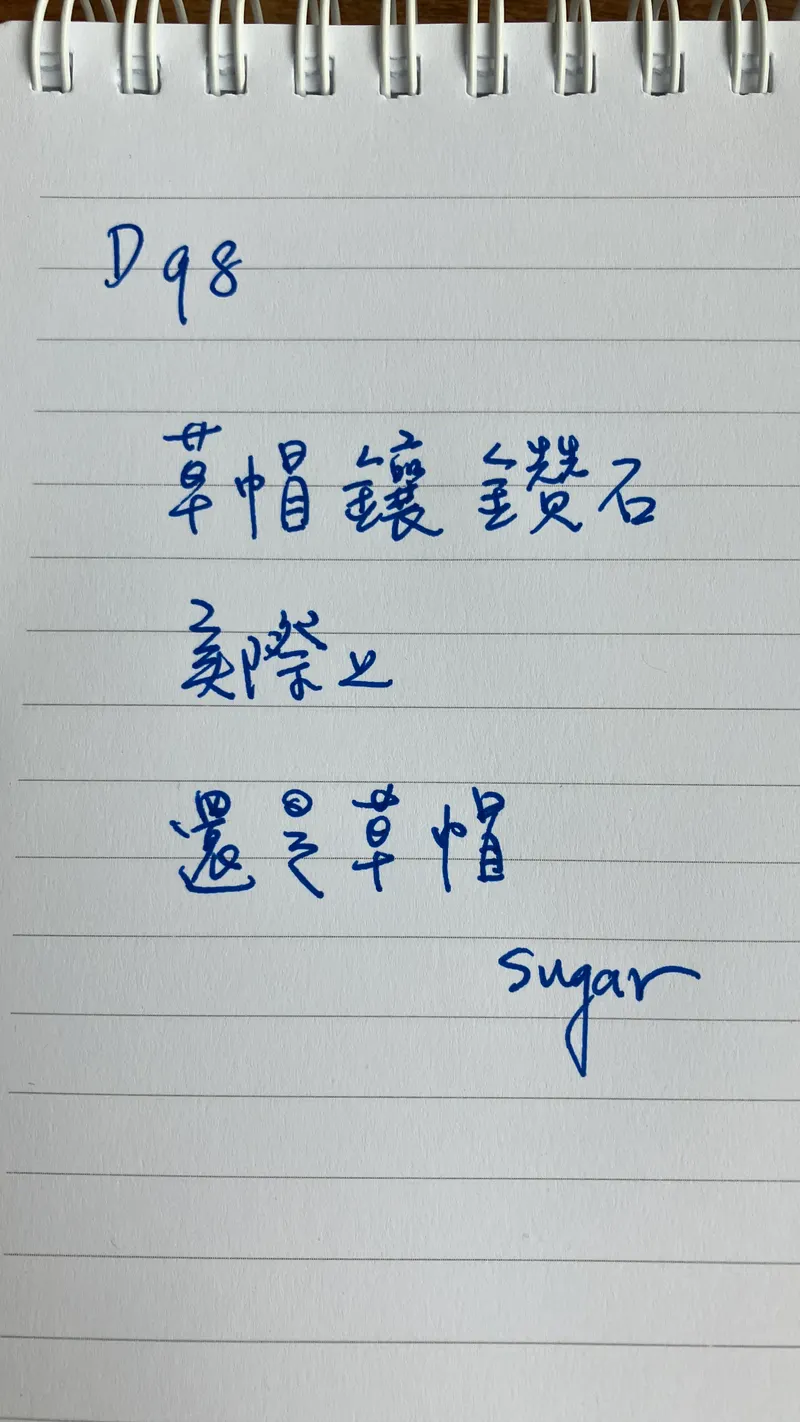 D98
草帽鑲鑽石
實際上
還是草帽
Sugar